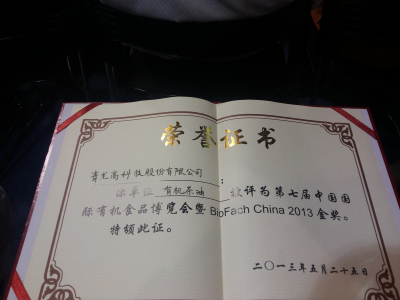 荣誉证书
青龙高科技股份有限公司：
你单位 有机茶油 被评为第七届中国国
际有机食品博览会暨 BioFach China 2013 金奖。
特颁此证。
二〇一三年五月二十五日